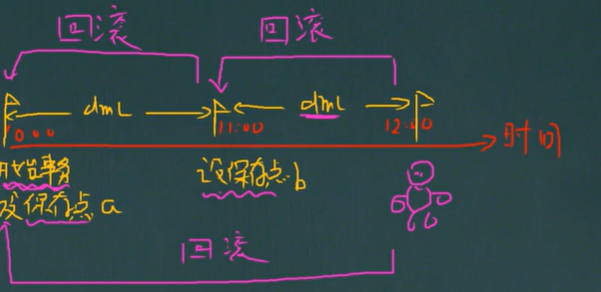 回滚
回滚
dmL
dmL
10:00
11:00
12:00
时间
开始事务
设保存点 a
设保存点 b
回滚